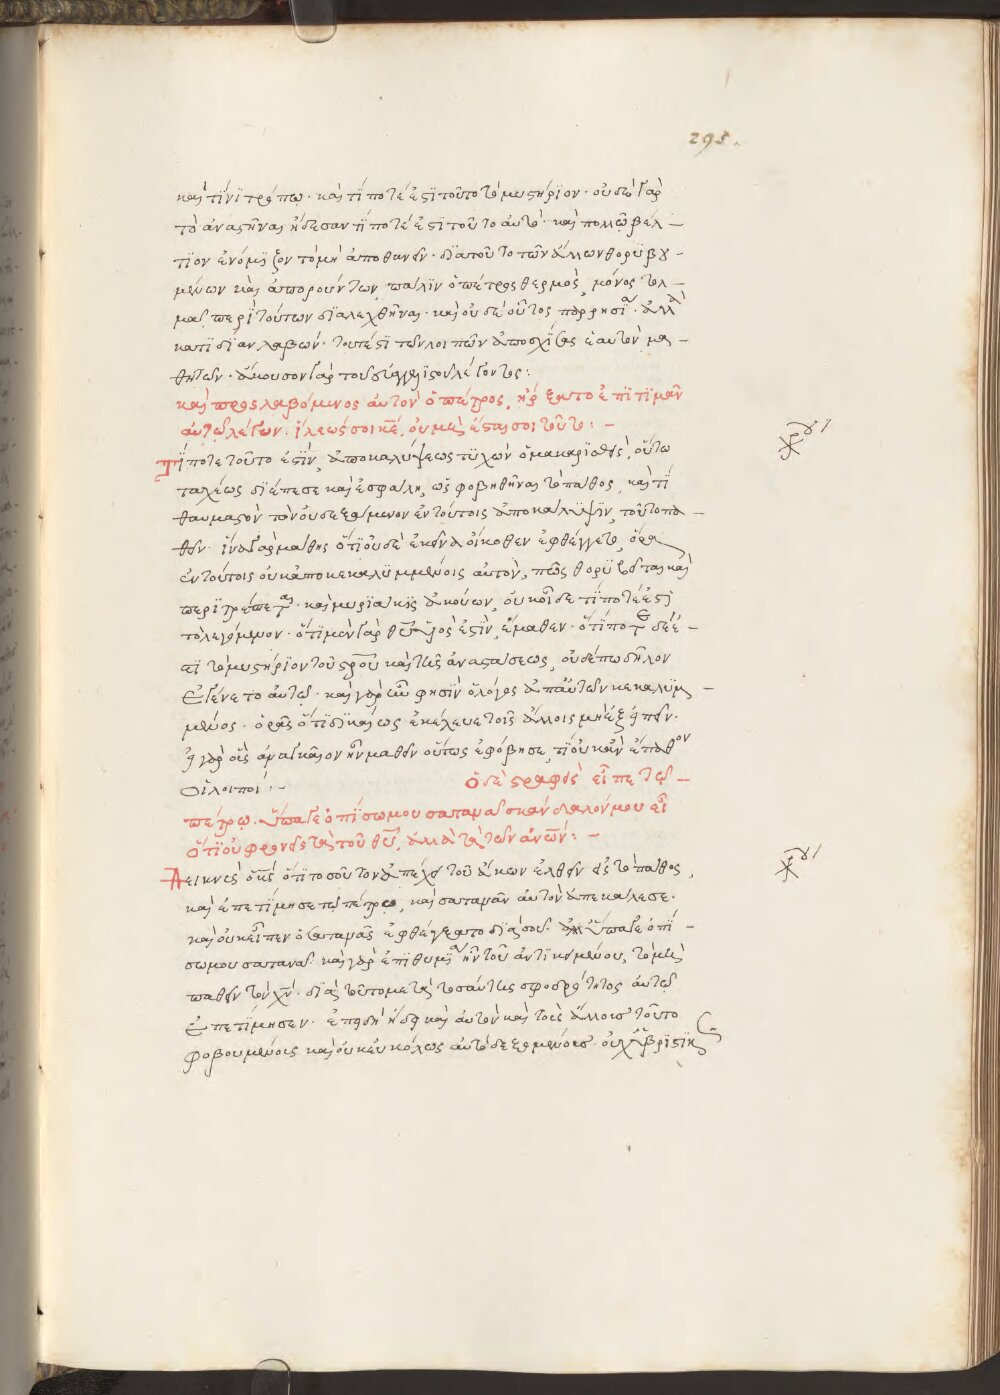 295.
καὶ τίνι τρόπῳ· καὶ τί ποτέ ἐστι τοῦτο τὸ μυστήριον· οὐδὲ γὰρ
τὸ ἀναστῆναι ᾔδεσαν τί ποτέ ἐστι τοῦτο αὐτό· καὶ πολλῷ βέλ-
τιον ἐνόμιζον τὸ μὴ ἀποθανεῖν· διατοῦτο τῶν ἄλλων θορυβου-
μένων καὶ ἀπορούντων, πάλιν ὁ πέτρος θερμὸς, μόνος τολ-
μᾶ περὶ τούτων διαλεχθῆναι· καὶ οὐδὲ οὗτος παρρησίᾳ· ἀλλὰ
κατιδίαν λαβών· τουτέστι τῶν λοιπῶν ἀποσχίσας ἑαυτὸν μα-
θητῶν· ἄκουσον γὰρ τοῦ εὐαγγελιστοῦ λέγοντος:
καὶ προσλαβόμενος αὐτὸν ὁ πέτρος, ἤρξατο ἐπιτιμᾶν
αὐτῷ λέγων· ἵλεώς σοι κε, οὐ μὴ ἔσται σοι τοῦτο: -
Τί ποτε τοῦτό ἐστιν, ὁ ἀποκαλύψεως τυχὼν ὁ μακαρισθεὶς, οὕτω
ταχέως διέπεσε καὶ ἐσφάλη, ὡς φοβηθῆναι τὸ πάθος, καὶ τί
θαυμαστὸν τὸν οὐ δεξάμενον ἐν τούτοις ἀποκάλυψιν, τοῦτο πα-
θεῖν· ἵνα γὰρ μάθῃς ὅτι οὐδὲ ἐκεῖνα οἴκοθεν ἐφθέγγετο, ὅρα
ἐν τούτοις οὐκ ἀποκεκαλυμμένοις αὐτὸν, πῶς θορυβεῖται καὶ
περιτρέπεται· καὶ μυριάκις ἀκούων, οὐκ οἶδε τί ποτέ ἐστι
τὸ λεγόμενον· ὅτι μὲν γὰρ θῦ υἱός ἐστιν, ἔμαθεν· ὅτι ποτε δέ ἐ-
στι τὸ μυστήριον τοῦ στροῦ καὶ τῆς ἀναστάσεως, οὐδέπω δῆλον
ἐγένετο αὐτῷ· καὶ γὰρ ἦν φησιν ὁ λόγος ἀπαὐτῶν κεκαλυμ-
μένος· ὁρᾷς ὅτι δικαίως ἐκέλευε τοῖς ἄλλοις μὴ ἐξειπεῖν·
εἰ γὰρ οἷς ἀναγκαῖον ἦν μαθεῖν οὕτως ἐφόβησε, τί οὐκ ἂν ἔπαθον
οἱ λοιποί: - ὁ δὲ στραφεὶς εἶπε τῷ -
πέτρῳ· ὕπαγε ὀπίσω μου σατανᾶ σκάνδαλόν μου εἶ
ὅτι οὐ φρονεῖς τὰ τοῦ θῦ, ἀλλὰ τὰ τῶν ἀνων: -
Δεικνὺς ὁ κς ὅτι τοσοῦτον ἀπέχει τοῦ ἄκων ἐλθεῖν εἰς τὸ πάθος,
καὶ ἐπετίμησε τῷ πέτρῳ, καὶ σατανᾶν αὐτὸν ἀπεκάλεσε·
καὶ οὐκ εἶπεν ὁ σατανᾶς ἐφθέγξατο διὰ σοῦ· ἀλλ ὕπαγε ὀπί-
σω μου σατανᾶ· καὶ γὰρ ἐπιθυμία ἦν τοῦ ἀντικειμένου, τὸ μὴ
παθεῖν τὸν χν· διὰ τοῦτο μετὰ τοσαύτης σφοδρότητος αὐτῷ
ἐπετίμησεν· ἐπειδὴ ᾔδει καὶ αὐτὸν καὶ τοὺς ἄλλους τοῦτο
φοβουμένους καὶ οὐκ εὐκόλως αὐτὸ δεξαμένους· οὐχ ὑβριστικῶς